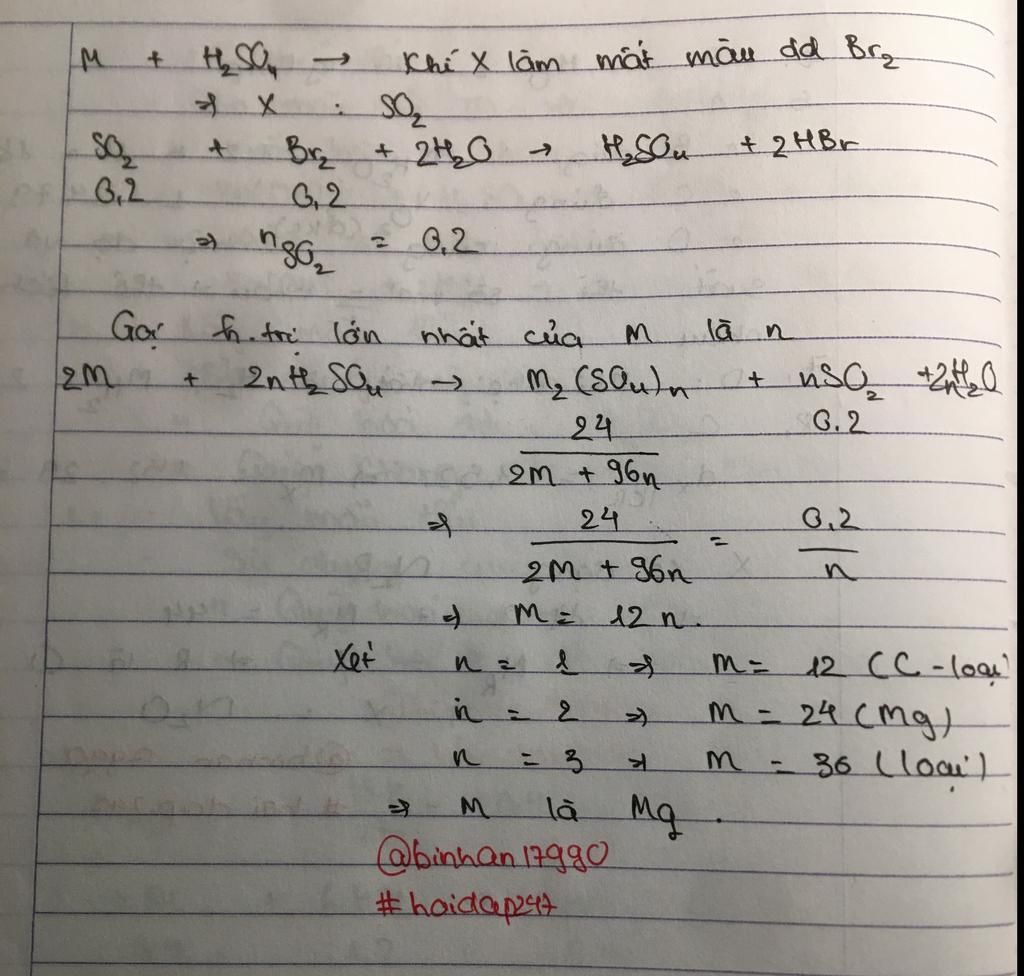 M + H₂SO₄ → Khí X làm mất màu dd Br₂
⇒ X : SO₂
SO₂ + Br₂ + 2H₂O → H₂SO₄ + 2HBr
0,2 0,2
⇒ nSO₂ = 0,2
Gọi h.trị lớn nhất của M là n
2M + 2nH₂SO₄ → M₂(SO₄)n + nSO₂ + 2nH₂O
24 0,2
2M + 96n
⇒ 24 = 0,2
2M + 96n n
⇒ M = 12n.
Xét n = 1 ⇒ M = 12 (C - loại)
n = 2 ⇒ M = 24 (Mg)
n = 3 ⇒ M = 36 (loại)
⇒ M là Mg.
@binhan17990
#hoidap247